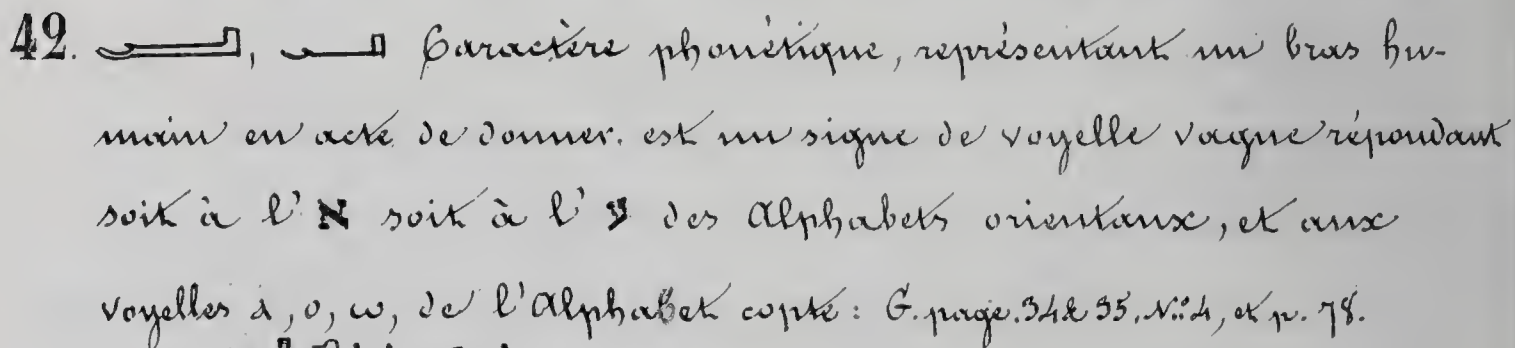 42. 𓂝, 𓂝 Caractère phonétique, représentant un bras hu-
main en acte de donner. est un signe de voyelle vague répondant
soit à l'א soit à l'ע des Alphabets orientaux, et aux
voyelles ⲁ, ⲟ, ⲱ, de l'Alphabet copte: G. page. 34 & 35. N.º 4, et p. 78.